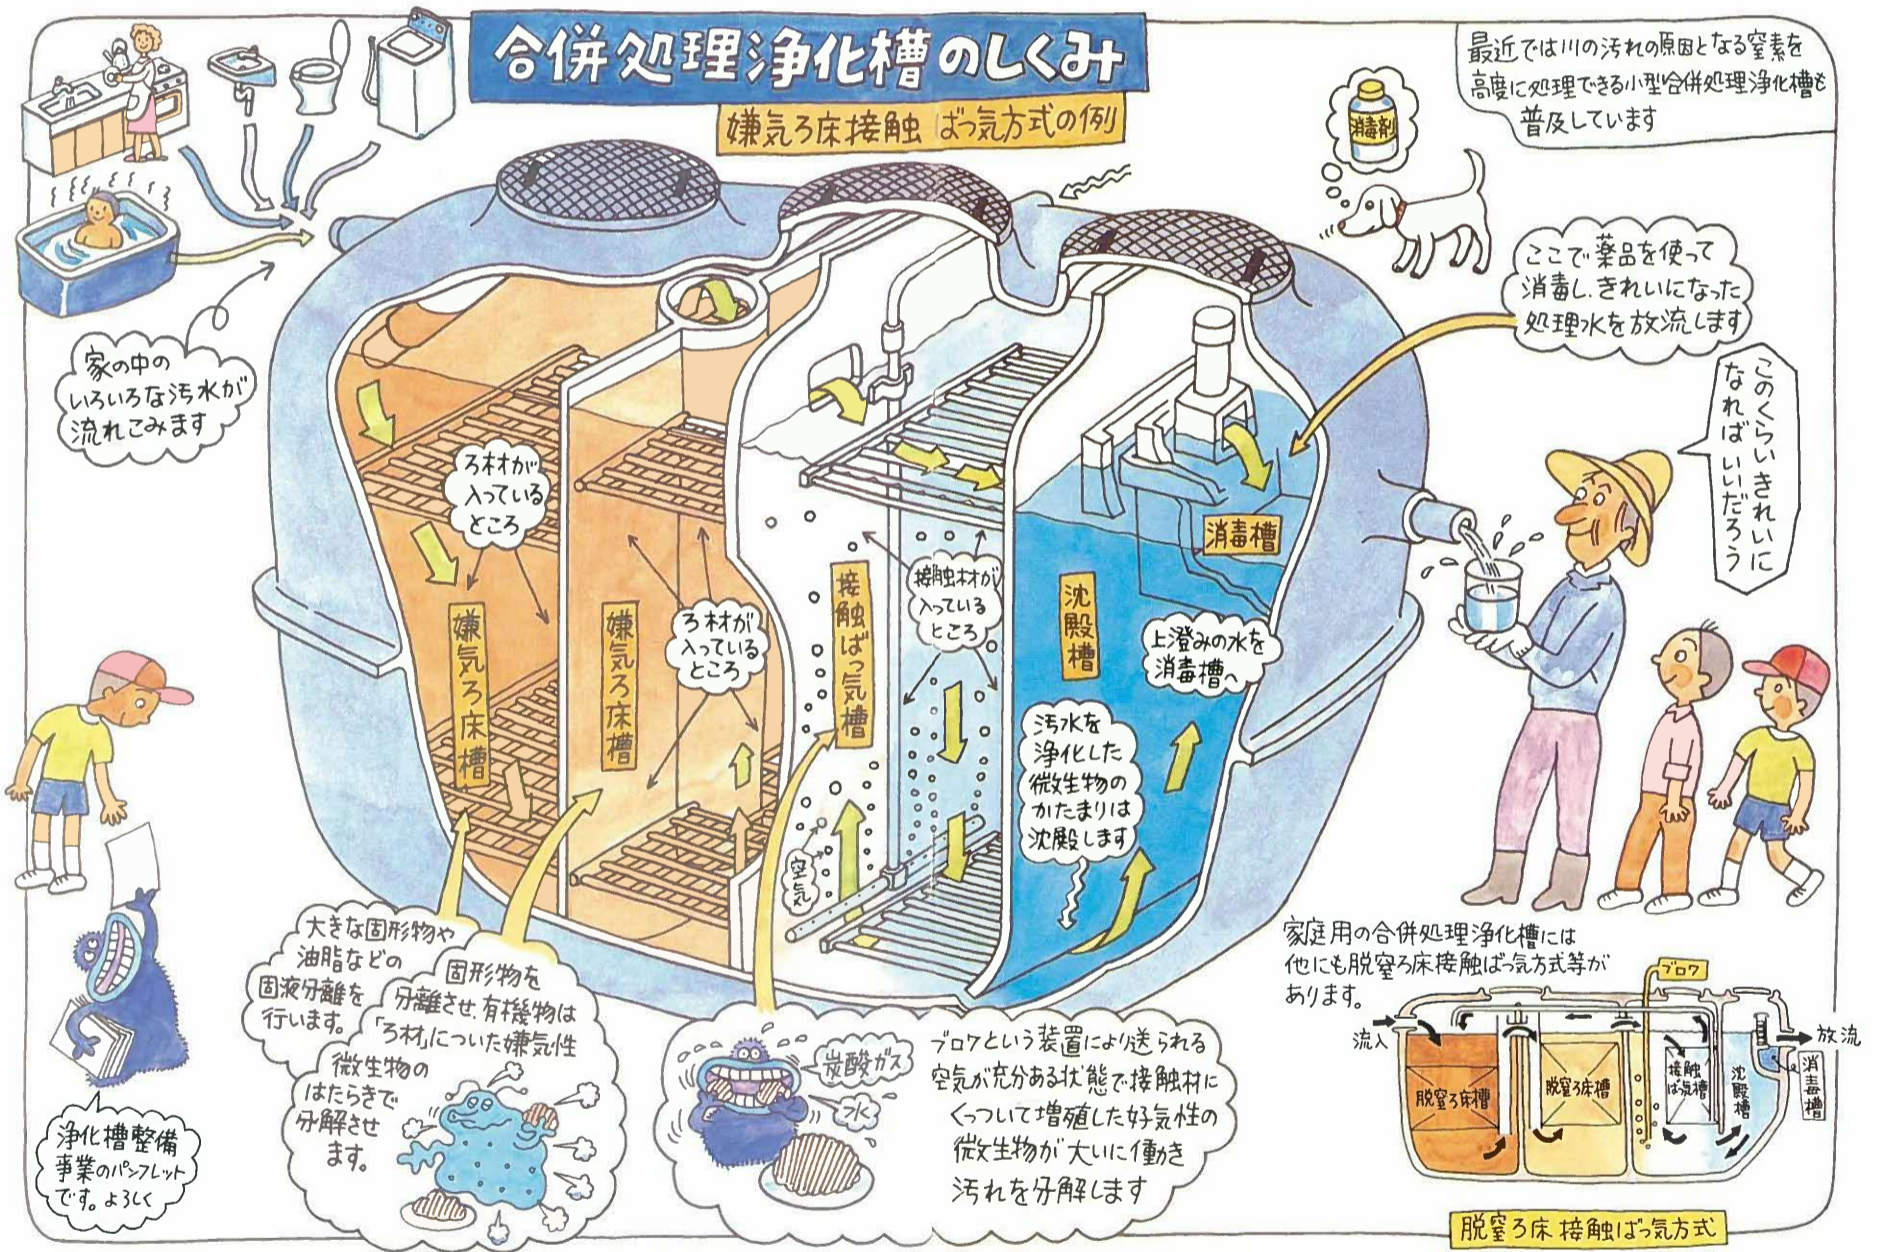 合併処理浄化槽のしくみ
嫌気ろ床接触ばっ気方式の例
最近では川の汚れの原因となる窒素を
高度に処理できる小型合併処理浄化槽も
普及しています
消毒剤
ここで薬品を使って
消毒し、きれいになった
処理水を放流します
家の中の
いろいろな汚水が
流れこみます
このくらいきれいに
なれば いいだろう
ろ材が
入っている
ところ
嫌気ろ床槽
嫌気ろ床槽
ろ材が
入っている
ところ
接触ばっ気槽
接触材が
入っている
ところ
空気
沈殿槽
消毒槽
上澄みの水を
消毒槽へ
汚水を
浄化した
微生物の
かたまりは
沈殿します
大きな固形物や
油脂などの
固液分離を
行います。
固形物を
分離させ、有機物は
「ろ材」についた嫌気性
微生物の
はたらきで
分解させ
ます。
炭酸ガス
水
ブロワという装置により送られる
空気が充分ある状態で接触材に
くっついて増殖した好気性の
微生物が大いに働き
汚れを分解します
浄化槽整備
事業のパンフレット
です。よろしく
家庭用の合併処理浄化槽には
他にも脱窒ろ床接触ばっ気方式等が
あります。
ブロワ
流入
放流
脱窒ろ床槽
脱窒ろ床槽
接触
ばっ気槽
沈殿槽
消毒槽
脱窒ろ床接触ばっ気方式